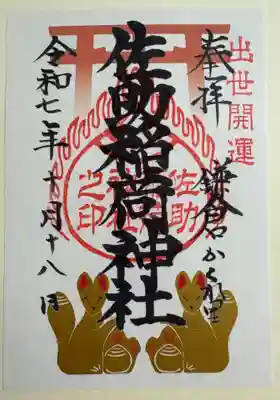 出世開運
奉拝
鎌倉かくれ里
佐助稲荷神社
佐助稲荷神社之印
令和七年十月十八日